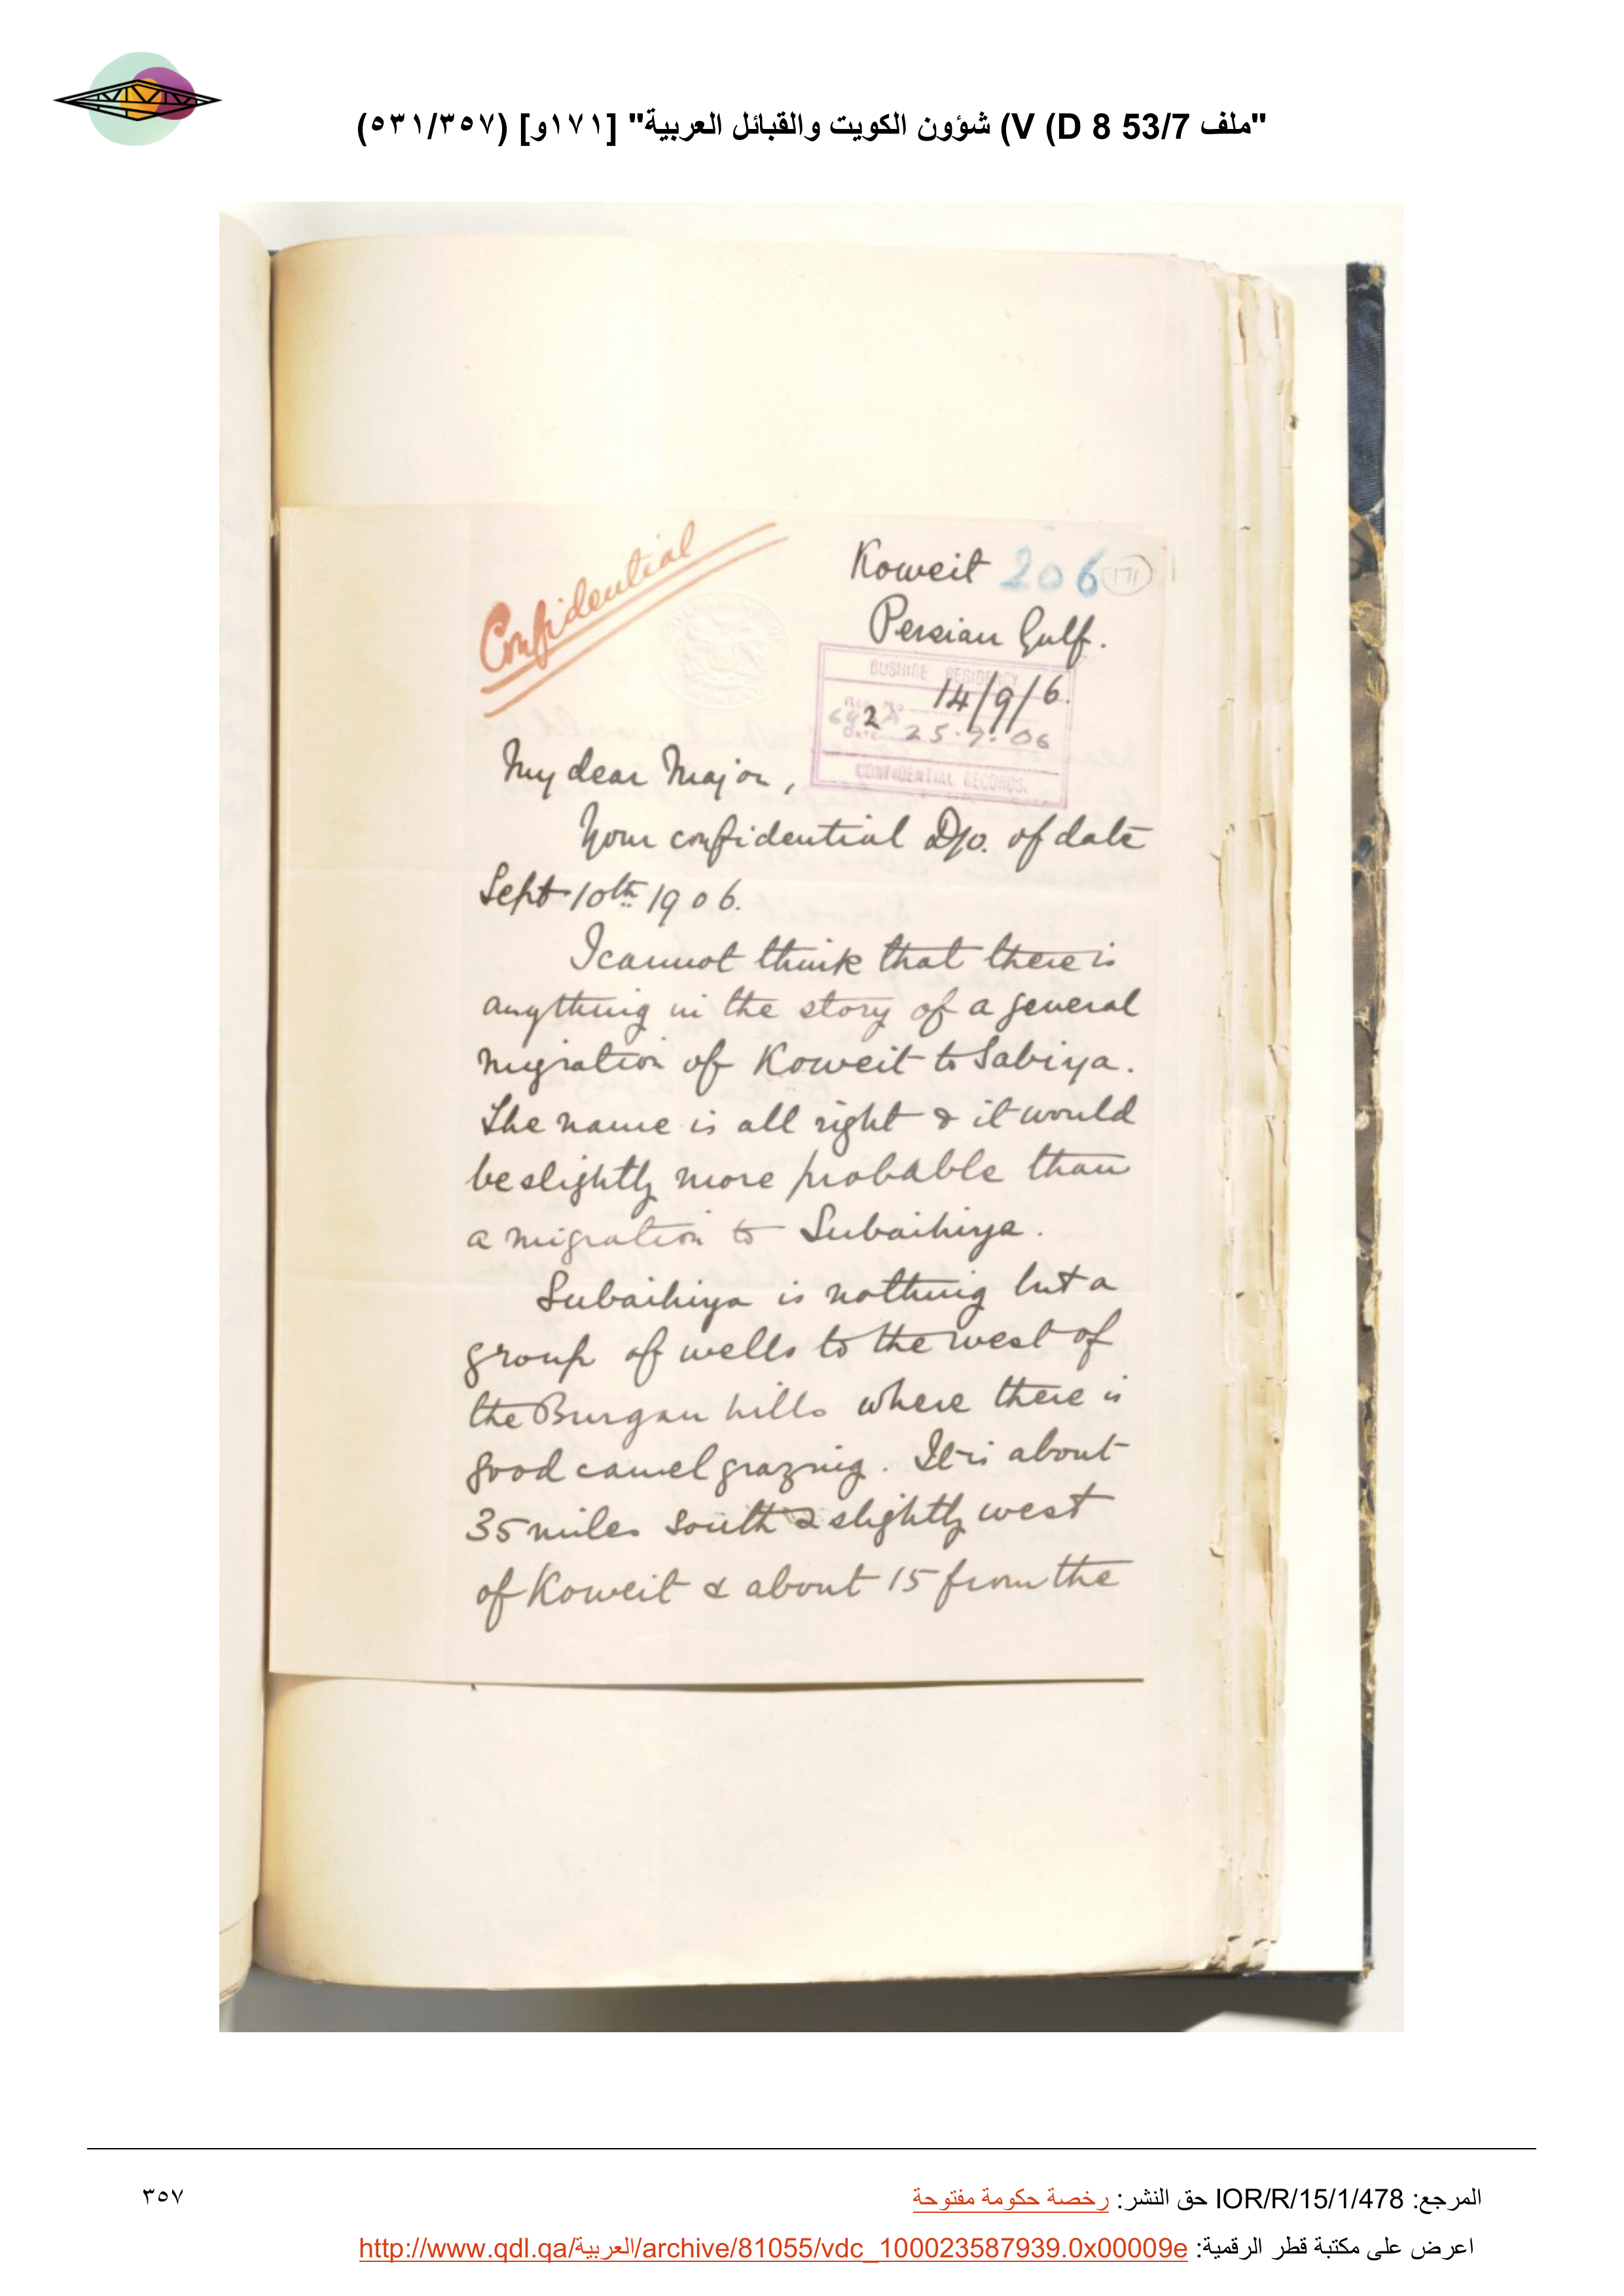 "ملف 53/7 D 8) V) شؤون الكويت والقبائل العربية" [١٧١و] (٥٣١/٣٥٧)
Confidential
Koweit 206 171
Persian Gulf.
BUSHIRE RESIDENCY
14/9/6.
Date 25.9.06
CONFIDENTIAL RECORDS.
My dear Major,
Your confidential D/o. of date
Sept 10th 1906.
I cannot think that there is
anything in the story of a general
migration of Koweit to Sabiya.
The name is all right & it would
be slightly more probable than
a migration to Subaihiya.
Subaihiya is nothing but a
group of wells to the west of
the Burgan hills where there is
good camel grazing. It is about
35 miles south & slightly west
of Koweit & about 15 from the
المرجع: IOR/R/15/1/478 حق النشر: رخصة حكومة مفتوحة
٣٥٧
اعرض على مكتبة قطر الرقمية: http://www.qdl.qa/العربية/archive/81055/vdc_100023587939.0x00009e